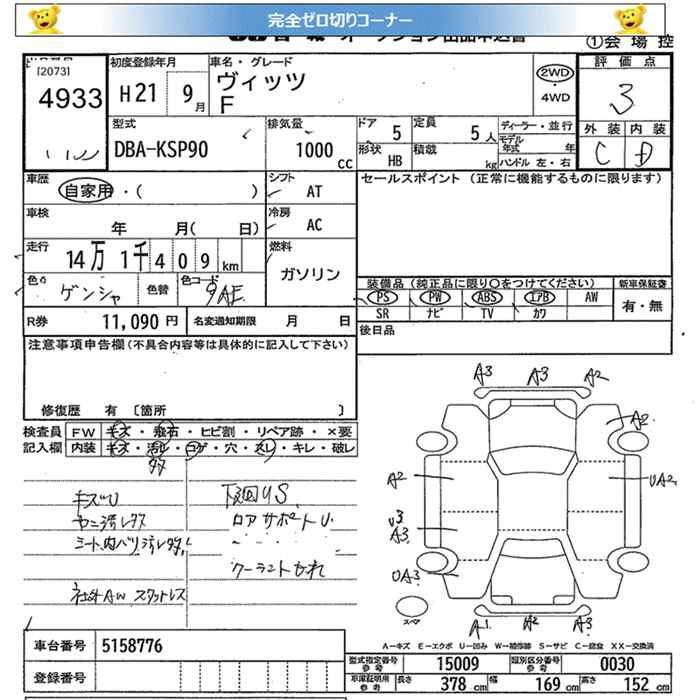 完全ゼロ切りコーナー
①会場控
[2073]
4933
初度登録年月
H21 9月
車名・グレード
ヴィッツ
F
2WD
・
4WD
評価点
3
外装 内装
C D
型式
DBA-KSP90
排気量
1000 cc
ドア 5
形状 HB
定員 5人
積載 kg
ディーラー・並行
モデル年式 年
ハンドル 左・右
車歴
自家用・( )
シフト
AT
セールスポイント (正常に機能するものに限ります)
車検
年 月( 日)
冷房
AC
走行
14万 1千 409 km
燃料
ガソリン
色
ゲンシャ
色替
色コード
装備品 (純正品に限り○をつけてください)
新車保証書
PS PW ABS エアB AW
SR ナビ TV カワ
有・無
R券 11,090 円
名変通知期限 月 日
後日品
注意事項申告欄 (不具合内容等は具体的に記入して下さい)
修復歴 有 〔箇所 〕
検査員
記入欄
FW キズ・飛石・ヒビ割・リペア跡・×要
内装 キズ・汚レ・コゲ・穴・スレ・キレ・破レ
キズU
ヤニ汚レタタ
シート、内バリ汚レタタ
社外AW スタットレス
下廻りS
ロアサポートU
クーラントもれ
A3 A3 A2
A2
A2
UA2
U3
A3
UA3
A1 A2 A3
スペア
A-キズ E-エクボ U-凹み W-補修跡 S-サビ C-腐食 XX-交換済
車台番号 5158776
登録番号
型式指定番号 参考 15009
類別区分番号 参考 0030
車庫証明用 参考 長さ 378 cm 幅 169 cm 高さ 152 cm